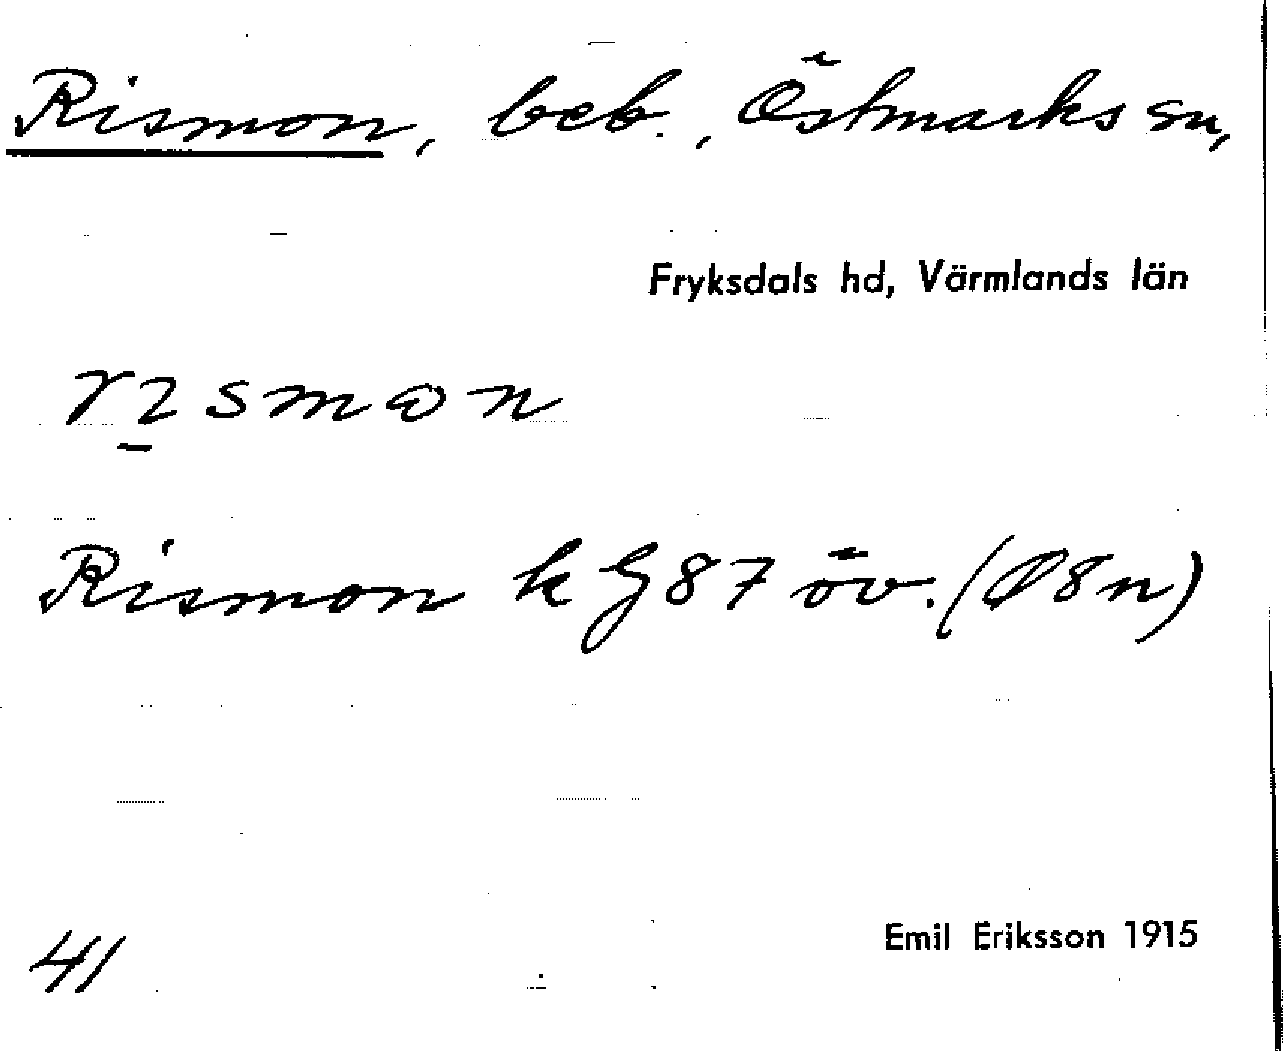 Rismon, beb., Östmarks sn,
Fryksdals hd, Värmlands län
Rismon k G 87 öv. (
41
Emil Eriksson 1915